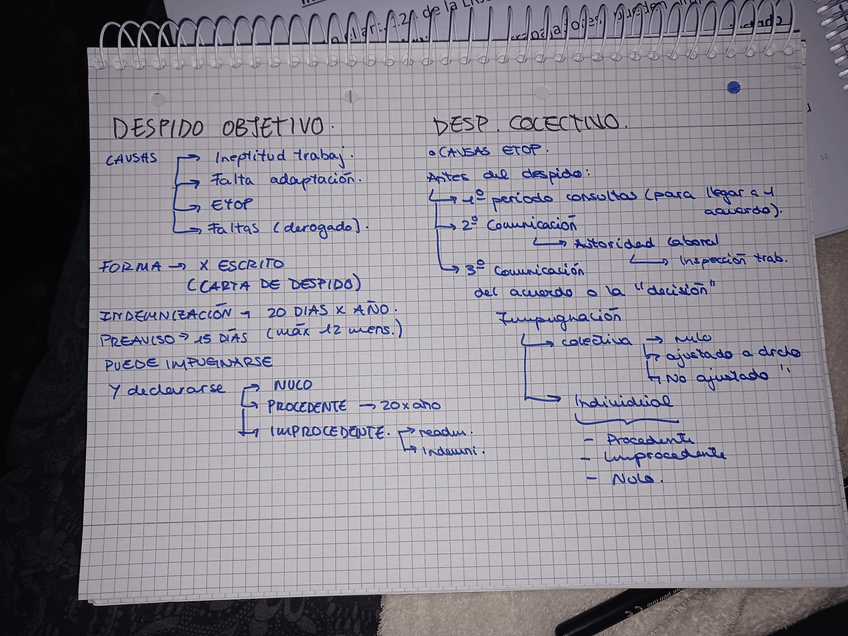 DESPIDO OBJETIVO.
CAUSAS → Ineptitud trabaj.
→ Falta adaptación.
→ ETOP
→ Faltas (derogado).
FORMA → X ESCRITO
(CARTA DE DESPIDO)
INDEMNIZACIÓN → 20 DIAS X AÑO.
PREAVISO → 15 DÍAS (máx 12 mens.)
PUEDE IMPUGNARSE
Y declararse → NULO
→ PROCEDENTE → 20 x año
→ IMPROCEDENTE. → readm.
→ Indemni.
DESP. COLECTIVO.
• CAUSAS ETOP.
Antes del despido:
→ 1º período consultas (para llegar a 1
acuerdo).
→ 2º Comunicación
→ Autoridad laboral
→ Inspección trab.
→ 3º Comunicación
del acuerdo o la "decisión"
Impugnación
→ colectiva → nulo
→ ajustado a drcho
→ No ajustado "
→ Individual
- Procedente
- Improcedente
- Nulo.